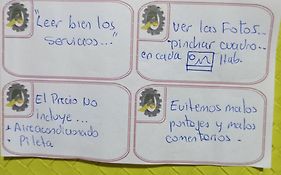 "Leer bien los
servicios..."
Ver las Fotos...
pinchar cuadro
en cada Hab.
El Precio No
incluye...
• Aireacondicionado
• Pileta
Evitemos malos
puntajes y malos
comentarios.